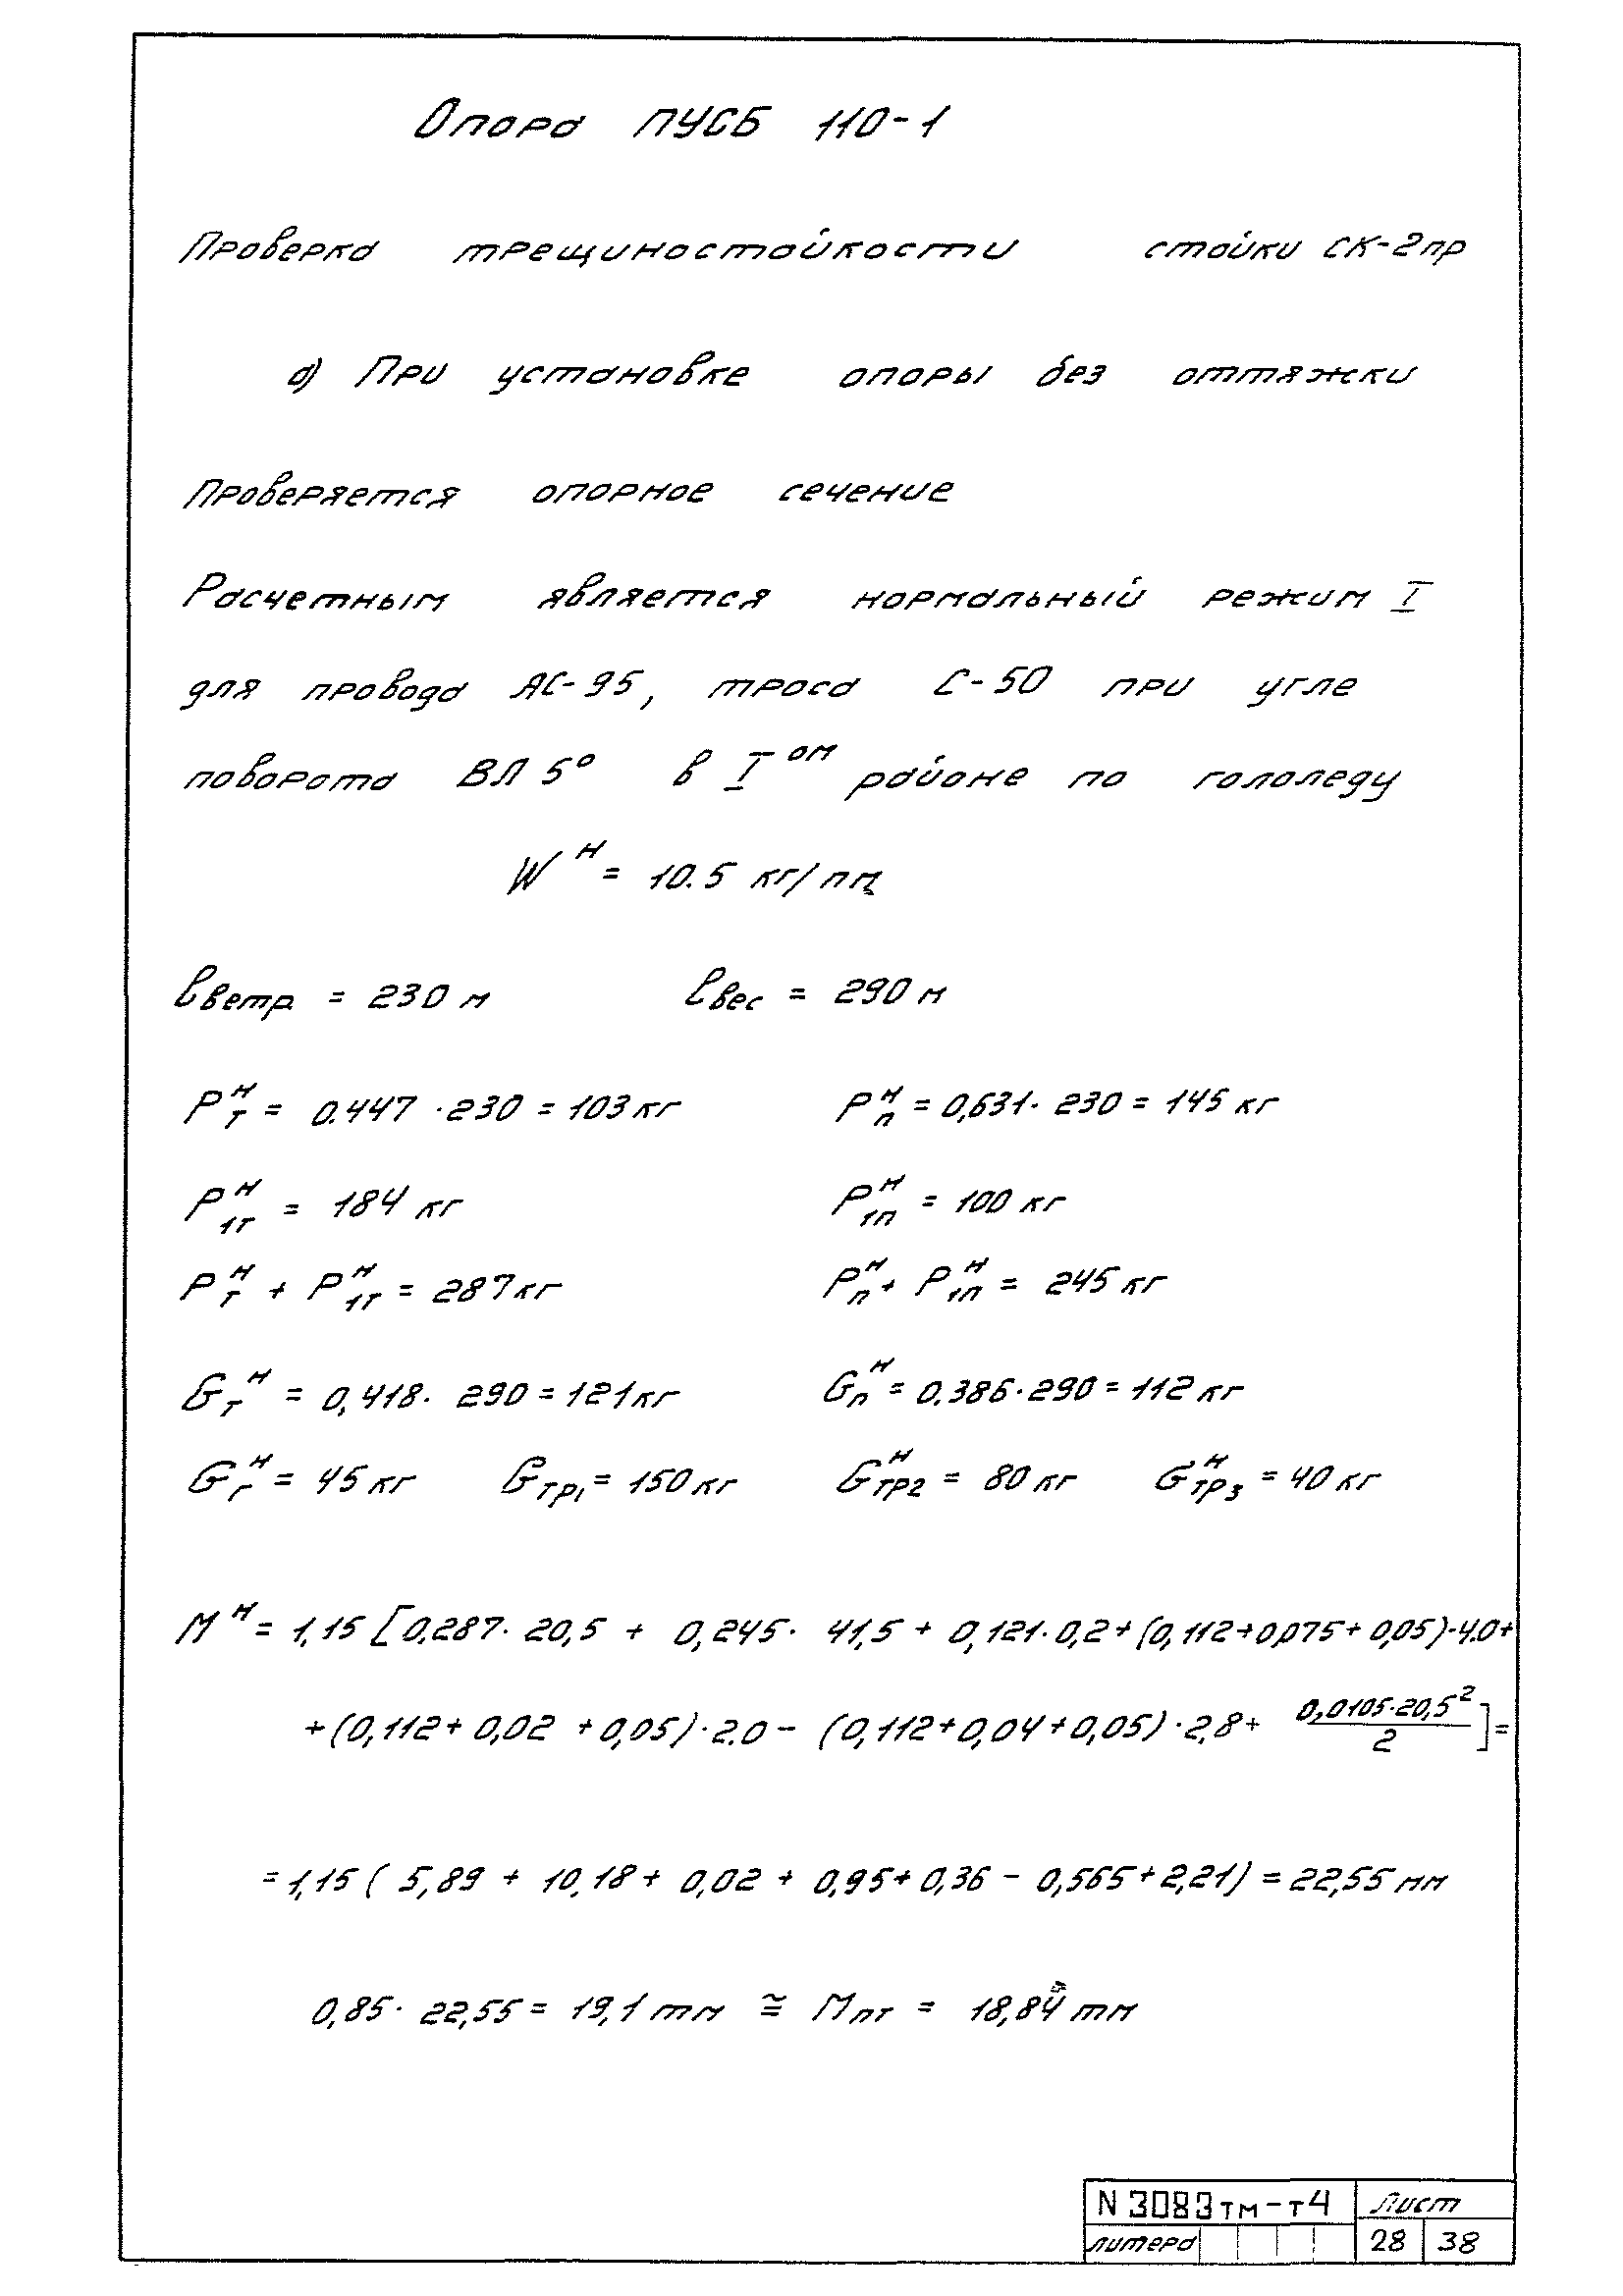 Опора ПУСБ 110-1
Проверка трещиностойкости стойки СК-2пр
а) При установке опоры без оттяжки
Проверяется опорное сечение
Расчетным является нормальный режим I
для провода АС-95, троса С-50 при угле
поворота ВЛ 5° в I ом районе по гололеду
W^н = 10.5 кг/пм
ℓветр = 230 м ℓвес = 290 м
P^н_т = 0.447 · 230 = 103 кг P^н_п = 0,631 · 230 = 145 кг
P^н_1т = 184 кг P^н_1п = 100 кг
P^н_т + P^н_1т = 287 кг P^н_п + P^н_1п = 245 кг
G^н_т = 0,418 · 290 = 121 кг G^н_п = 0.386 · 290 = 112 кг
G^н_г = 45 кг G_тр1 = 150 кг G^н_тр2 = 80 кг G^н_тр3 = 40 кг
M^н = 1,15 [0,287 · 20,5 + 0,245 · 41,5 + 0,121 · 0,2 + (0,112 + 0,075 + 0,05) · 4.0 +
+ (0,112 + 0,02 + 0,05) · 2.0 - (0,112 + 0,04 + 0,05) · 2,8 + 0,0105 · 20,5² / 2 ] =
= 1,15 ( 5,89 + 10,18 + 0,02 + 0,95 + 0,36 - 0,565 + 2,21) = 22,55 мм
0,85 · 22,55 = 19,1 тм ≅ Mпт = 18,84 тм
N 3083тм-т4 Лист
литера 28 38